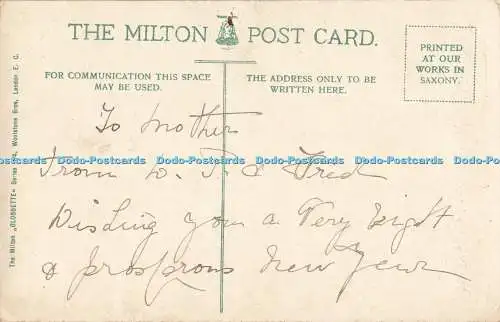 THE MILTON POST CARD.
PRINTED
AT OUR
WORKS IN
SAXONY.
FOR COMMUNICATION THIS SPACE
MAY BE USED.
THE ADDRESS ONLY TO BE
WRITTEN HERE.
The Milton "GLOSSETTE" Series Woolstone Bros, London E. C.
To Mother
Dodo-Postcards Dodo-Postcards Dodo-Postcards Dodo-Postcards Dodo-Postcards
From & Fred
Wishing you a Very Bright
& prosprous New Year